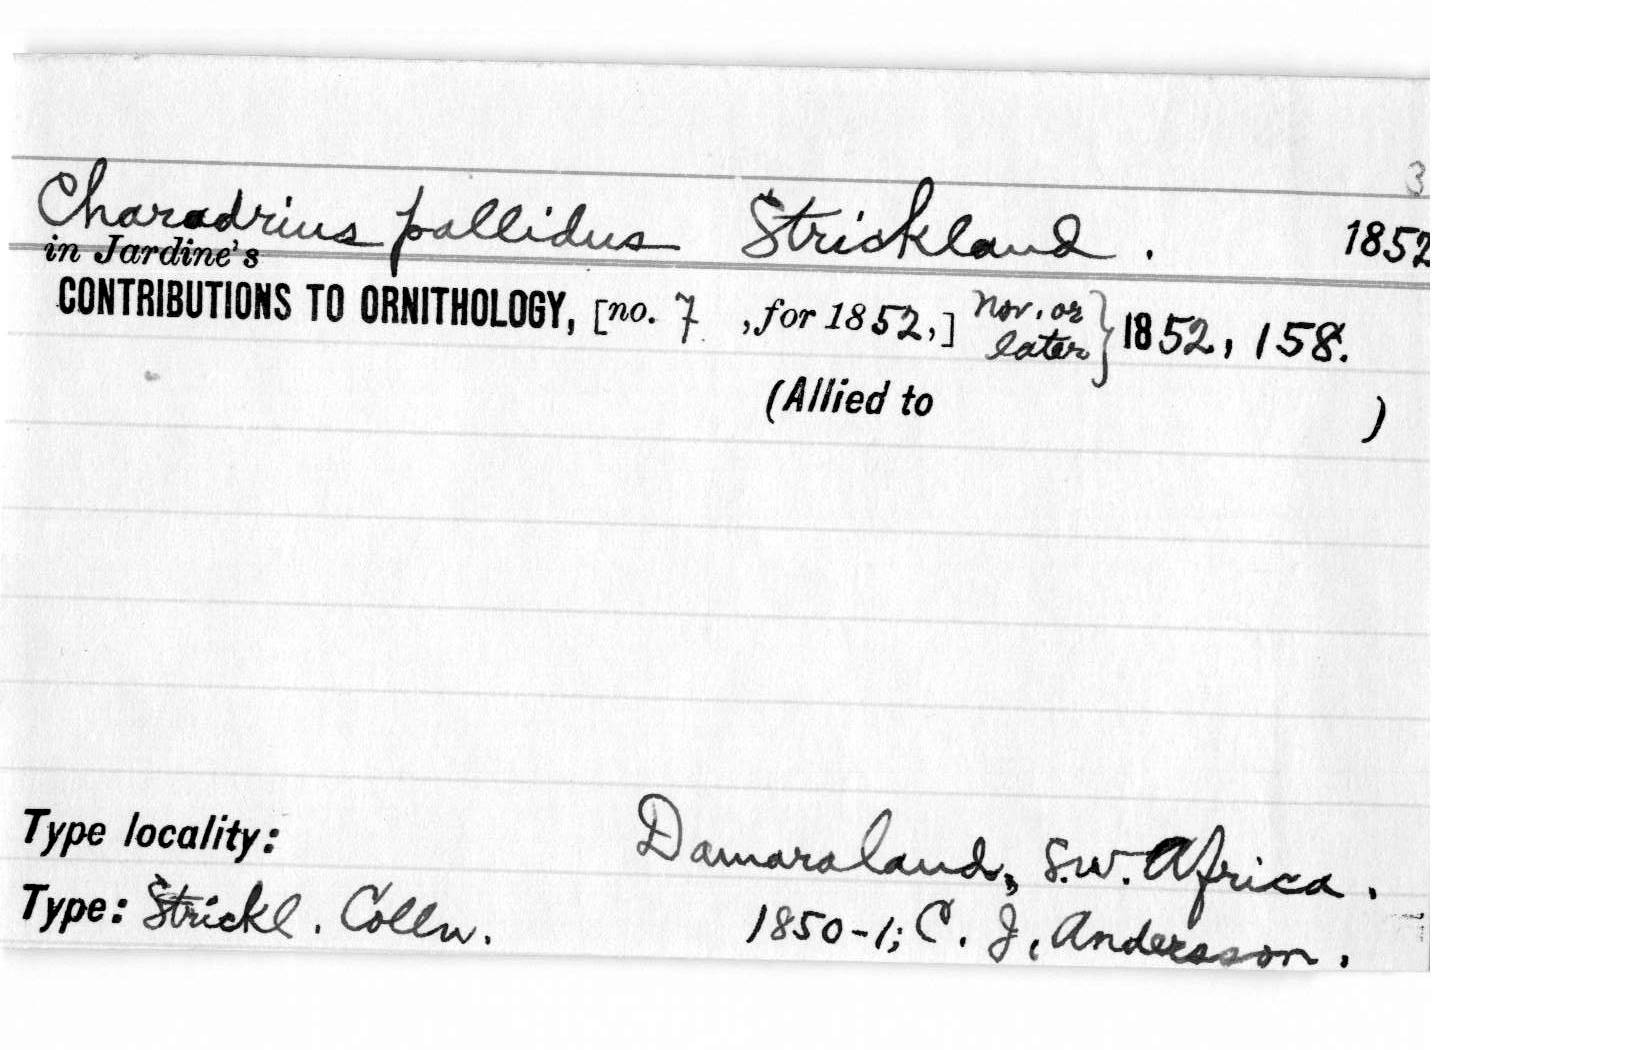 3
Charadrius pallidus Strickland. 1852
in Jardine's
CONTRIBUTIONS TO ORNITHOLOGY, [no. 7, for 1852,] Nov. or later} 1852, 158.
(Allied to )
Type locality: Damaraland, S.W. Africa.
Type: Strickl. Colln. 1850-1; C. J. Andersson.